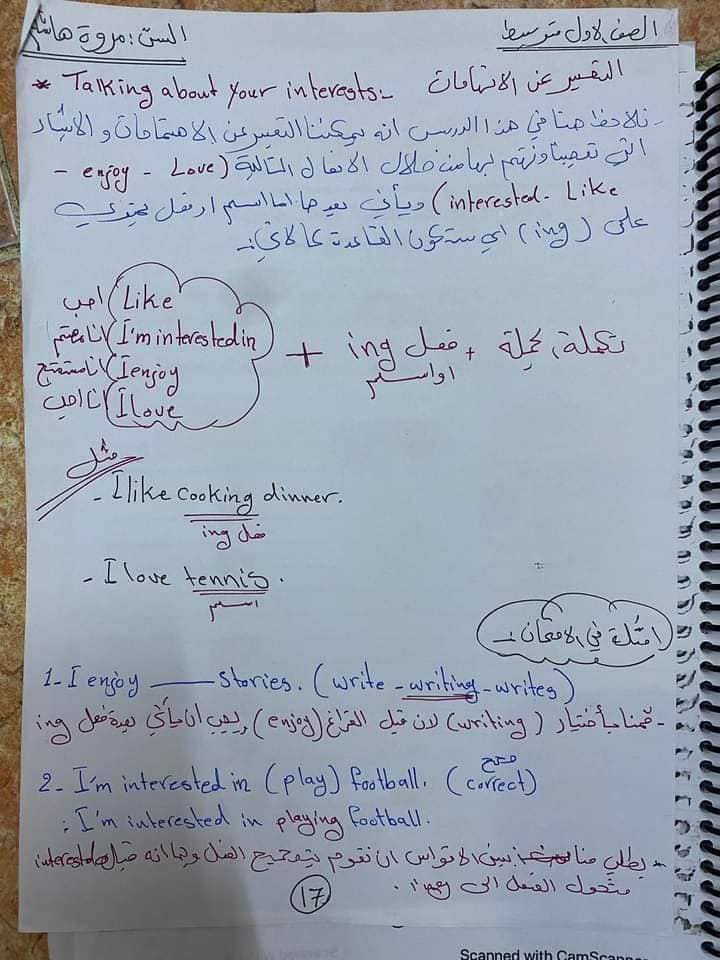 الصف الاول متوسط
الست: مروة هاشم
* Talking about your interests:- التعبير عن الاهتمامات
- نلاحظ هنا في هذا الدرس انه يمكننا التعبير عن الاهتمامات و الاشياء
التي تعجبنا ونهتم بها من خلال الافعال التالية (enjoy - Love -
interested - Like) ويأتي بعدها اما اسم او فعل يحتوي
على (ing) اي ستكون القاعدة كالاتي:-
احب Like
انا مهتم I'm interested in
انا مستمتع I enjoy
انا احب I love
+ فعل ing + تكملة الجملة
او اسم
مثل
- I like cooking dinner.
فعل ing
- I love tennis.
اسم
امثلة في الامتحان:-
1- I enjoy ——— stories. (write - writing - writes)
- قمنا بأختيار (writing) لان قبل الفراغ (enjoy) ويجب ان يأتي بعدة فعل ing
2- I'm interested in (play) football. (correct) صحح
: I'm interested in playing football.
* يطلب منا بين الاقواس ان نقوم بتصحيح الفعل وبما انه قبلها interested
فنحول الفعل الى ing.
17
Scanned with CamScanner